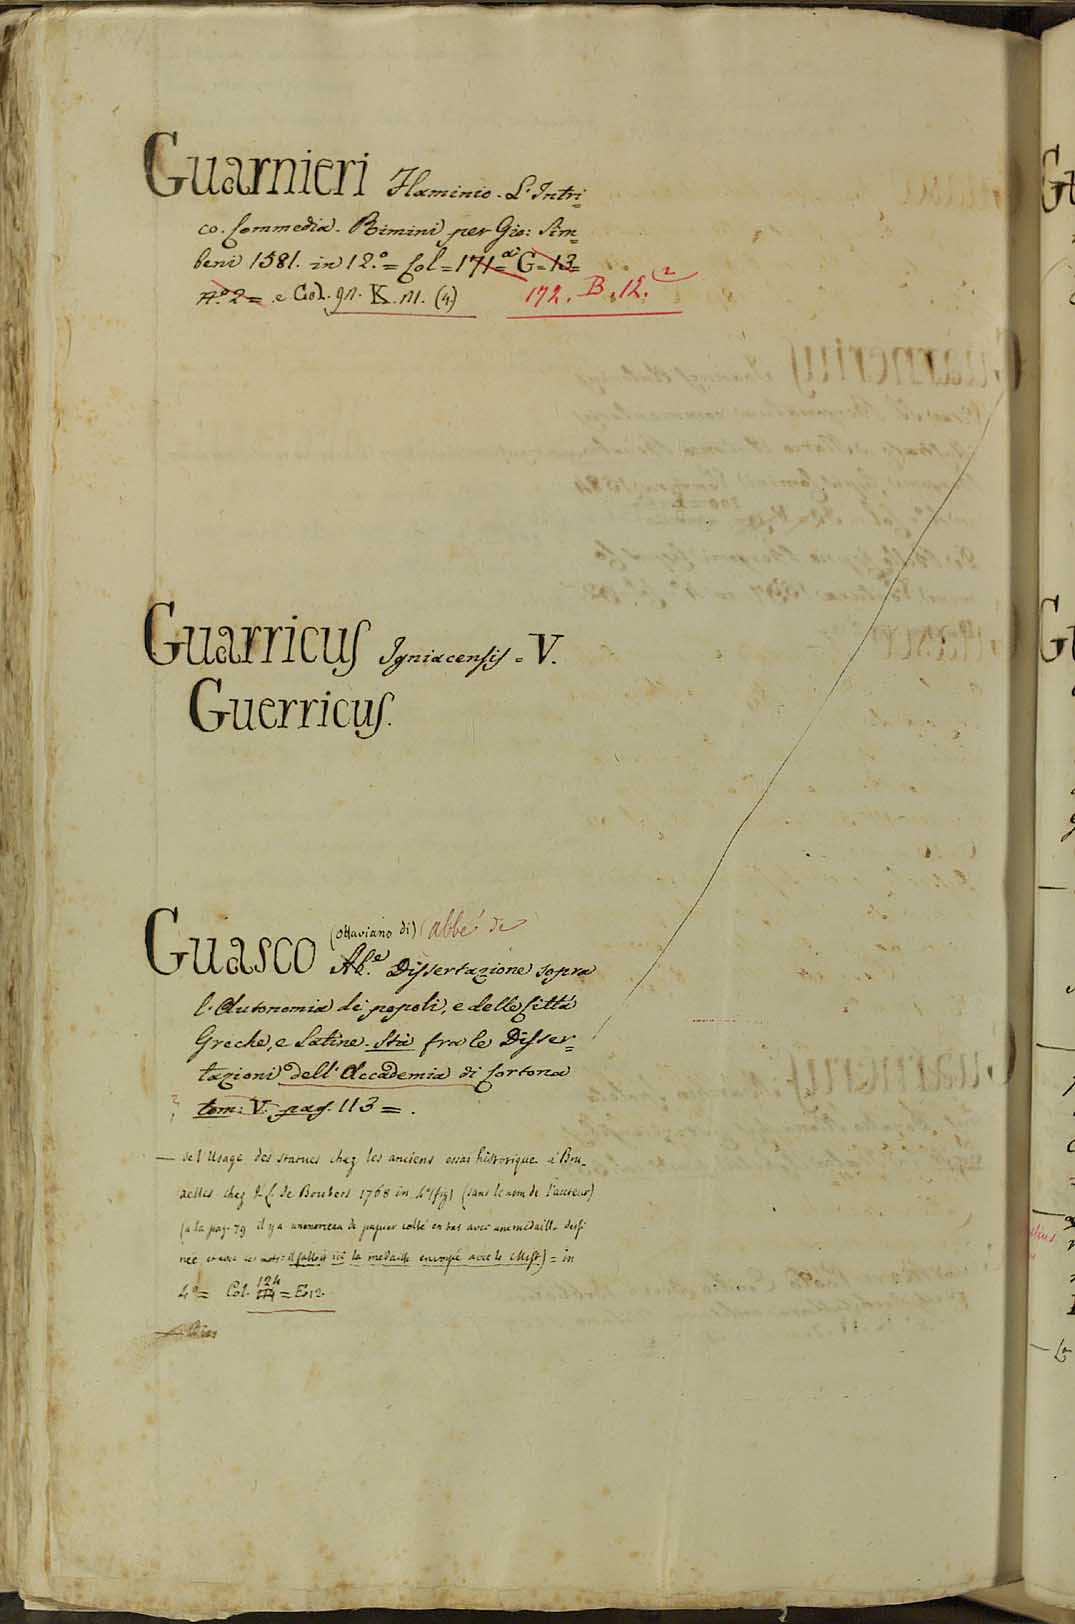 Guarnieri Flaminio. L'Intri=
co. Commedia. Rimini per Gio: Sim=
beni 1581. in 12.º = Col = 171 = a G = 13 =
N.º 2 = e Col. 91. K. M. (4) 172. B. 12. 2
Guarricus Igniacensis = V.
Guerricus.
(ottaviano di) (abbé de
Guasco Ab.e Dissertazione sopra
l'Autonomia di popoli, e delle Città
Greche, e Latine. Stà fra le Disser=
tazioni dell'Accademia di Cortona
tom: V. pag. 113 = .
— de l'Usage des statues chez les anciens essai historique à Bru-
xelles chez J. L. de Boubers 1768 in 4º (fig) (sans le nom de l'auteur)
(a la pag. 79 il y a un morceau de papier collé en bas avec une médaille dessi
née et avec ces mots: il falloit ici la medaille envoyé avec le Mss.t) = in
4º = Col. 124 = E. 12.